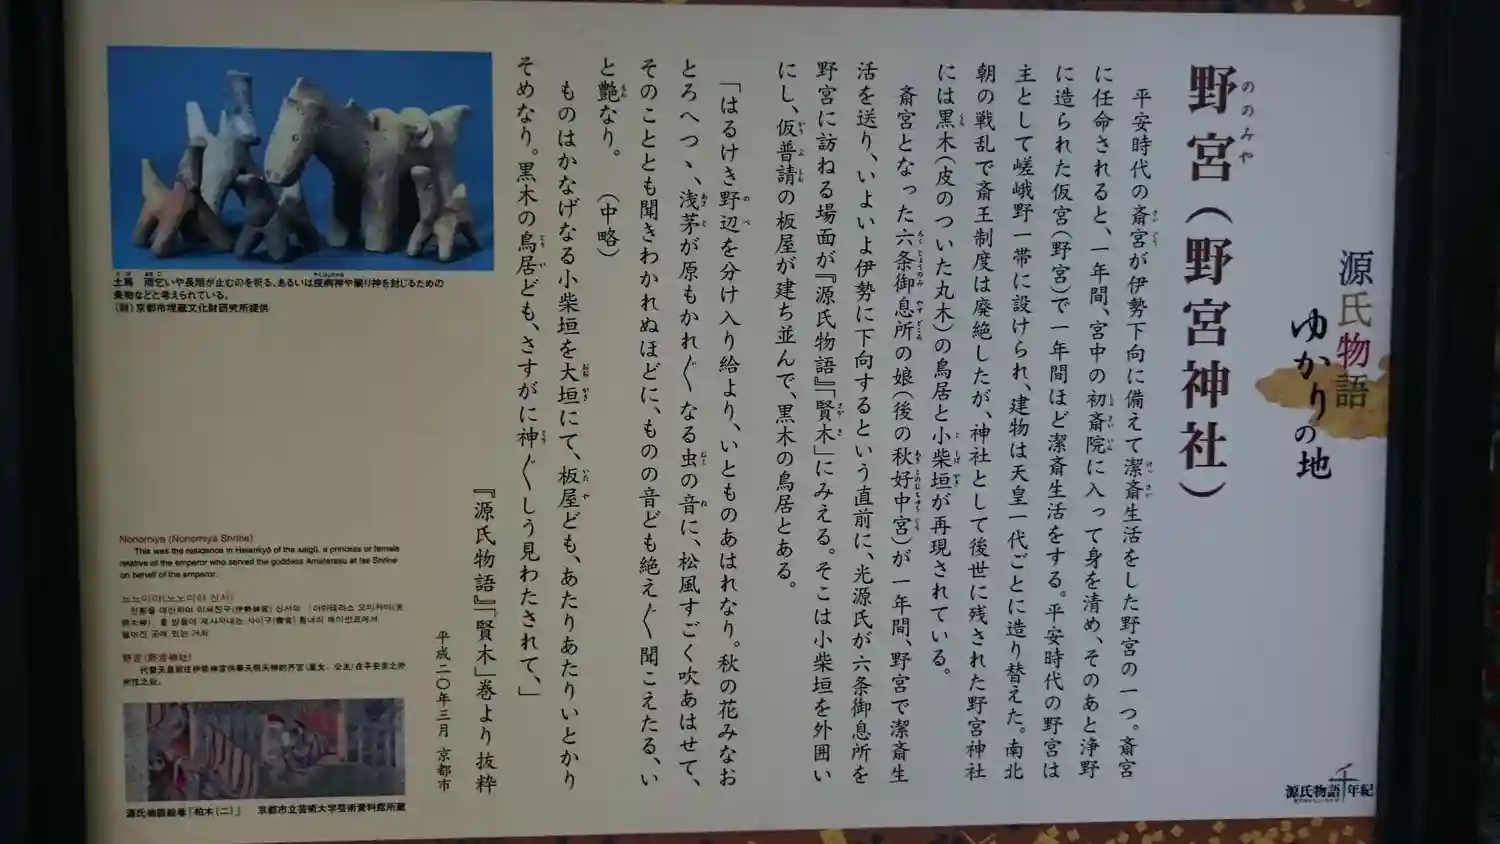 源氏物語
ゆかりの地
野宮（野宮神社）
ののみや
平安時代の斎宮が伊勢下向に備えて潔斎生活をした野宮の一つ。斎宮
に任命されると、一年間、宮中の初斎院に入って身を清め、そのあと浄野
に造られた仮宮（野宮）で一年間ほど潔斎生活をする。平安時代の野宮は
主として嵯峨野一帯に設けられ、建物は天皇一代ごとに造り替えた。南北
朝の戦乱で斎王制度は廃絶したが、神社として後世に残された野宮神社
には黒木（皮のついた丸木）の鳥居と小柴垣が再現されている。
斎宮となった六条御息所の娘（後の秋好中宮）が一年間、野宮で潔斎生
活を送り、いよいよ伊勢に下向するという直前に、光源氏が六条御息所を
野宮に訪ねる場面が『源氏物語』「賢木」にみえる。そこは小柴垣を外囲い
にし、仮普請の板屋が建ち並んで、黒木の鳥居とある。
「はるけき野辺を分け入り給より、いとものあはれなり。秋の花みなお
とろへつゝ、浅茅が原もかれ〴〵なる虫の音に、松風すごく吹あはせて、
そのこととも聞きわかれぬほどに、ものの音ども絶え〴〵聞こえたる、い
と艶なり。　（中略）
ものはかなげなる小柴垣を大垣にて、板屋ども、あたりあたりいとかり
そめなり。黒木の鳥居ども、さすがに神〴〵しう見わたされて、」
『源氏物語』「賢木」巻より抜粋
平成二〇年三月　京都市
土馬　雨乞いや長雨が止むのを祈る、あるいは疫病神や祟り神を封じるための
乗物などと考えられている。
（財）京都市埋蔵文化財研究所提供
Nonomiya (Nonomiya Shrine)
This was the residence in Heiankyō of the saigū, a princess or female
relative of the emperor who served the goddess Amaterasu at Ise Shrine
on behalf of the emperor.
노노미야(노노미야 신사)
천황을 대신하여 이세진구(伊勢神宮) 신사의 「아마테라스 오미카미(天
떨어진 곳에 있는 거처
野宮（野宮神社）
代替天皇前往伊势神宫供奉天照大神的齐宫（皇女、公主）在平安京之外
所性之处。
源氏物語絵巻「柏木（二）」　京都市立芸術大学芸術資料館所蔵
源氏物語千年紀